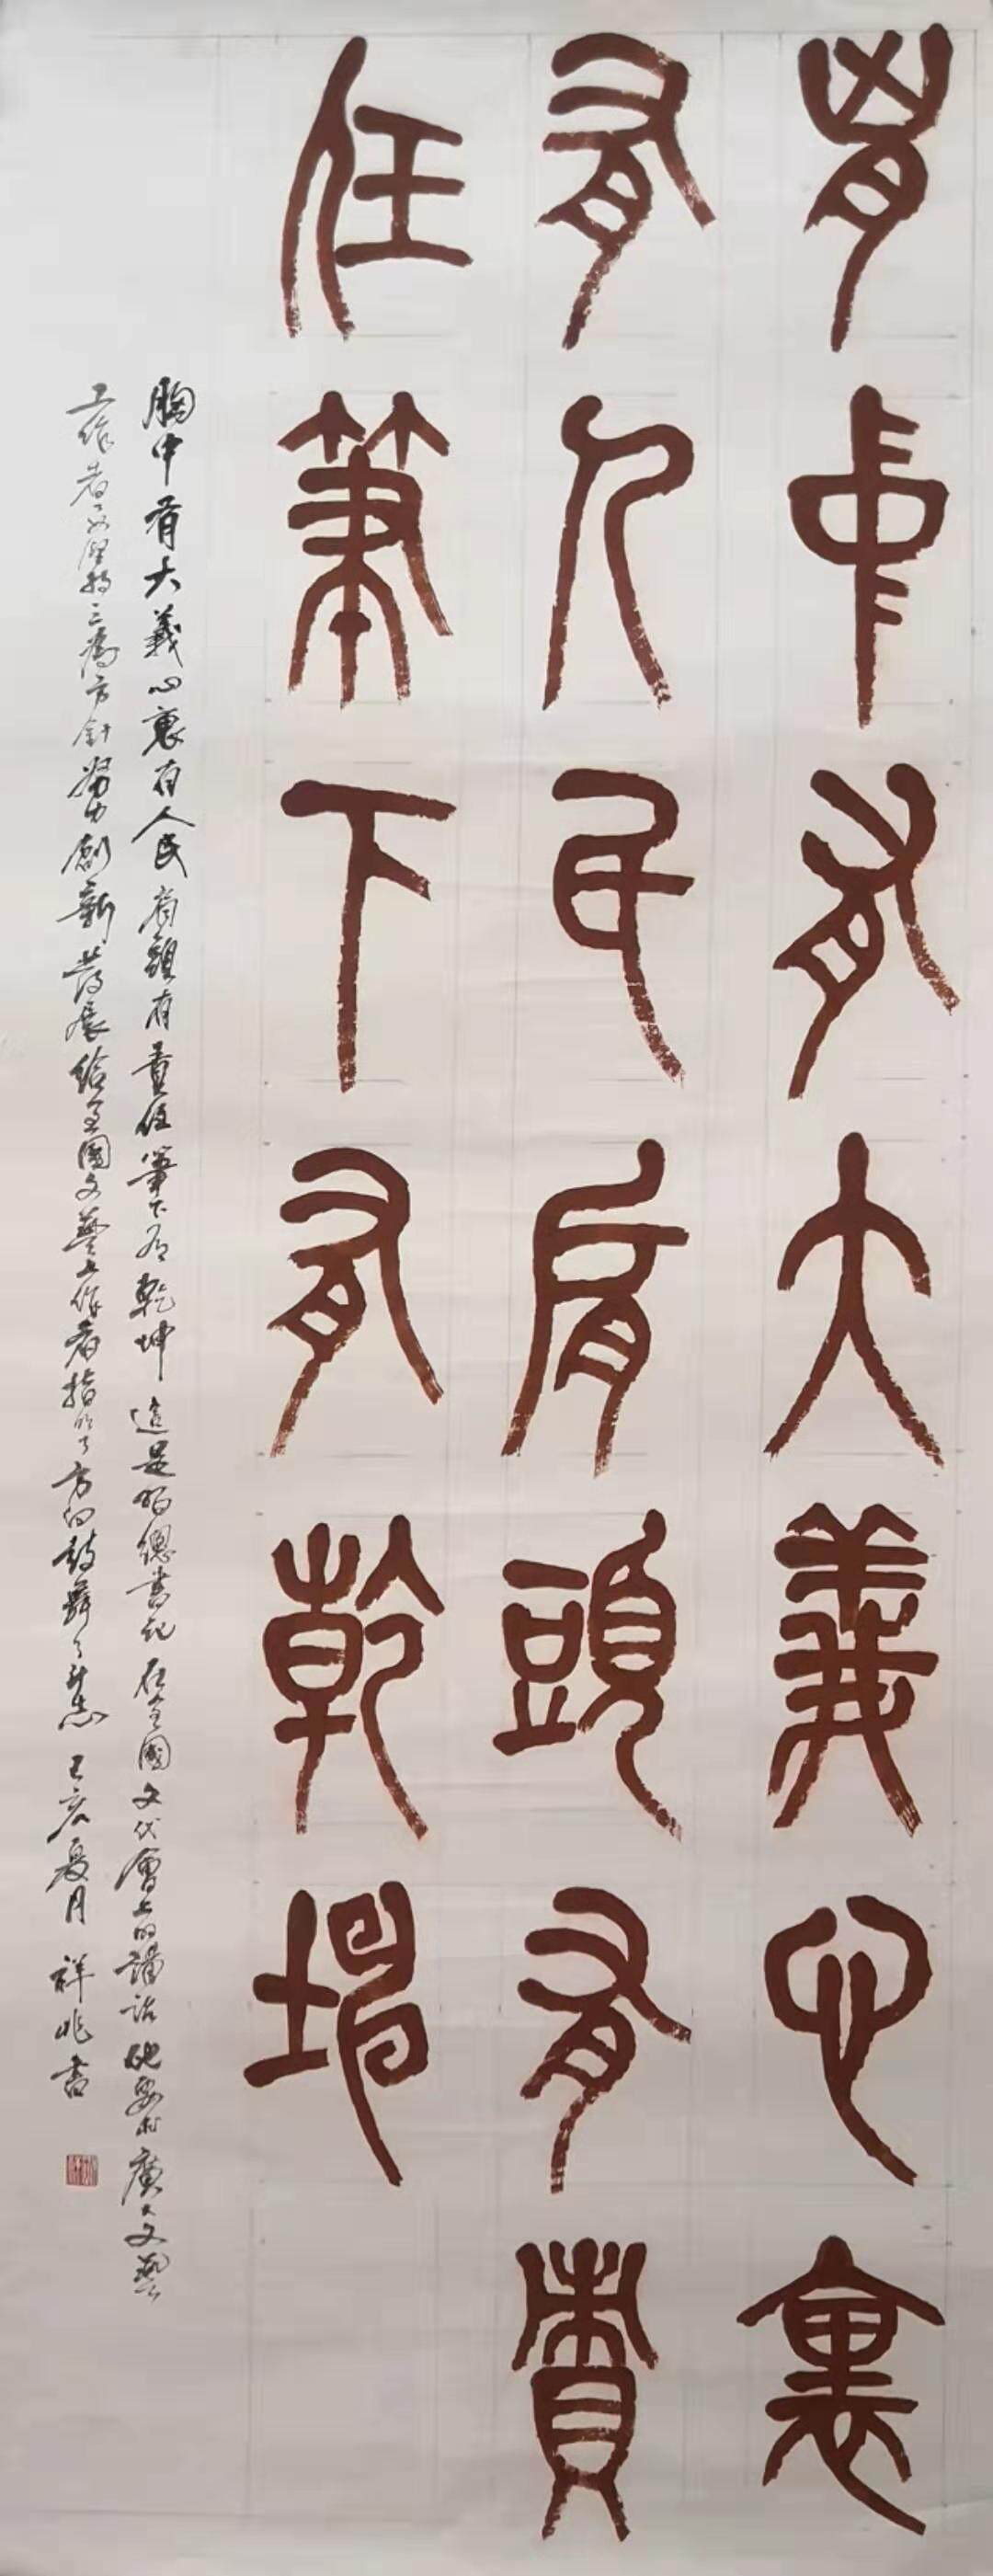 胷中有大義心裏
有人民肩頭有責
任筆下有乾坤
胸中有大義心裏有人民肩頭有責任筆下有乾坤 這是習總書記在全國文代會上的講話他要求廣大文藝
工作者要堅持三為方針努力創新發展給全國文藝工作者指明了方向鼓舞了鬥志 夏月 祥兆書